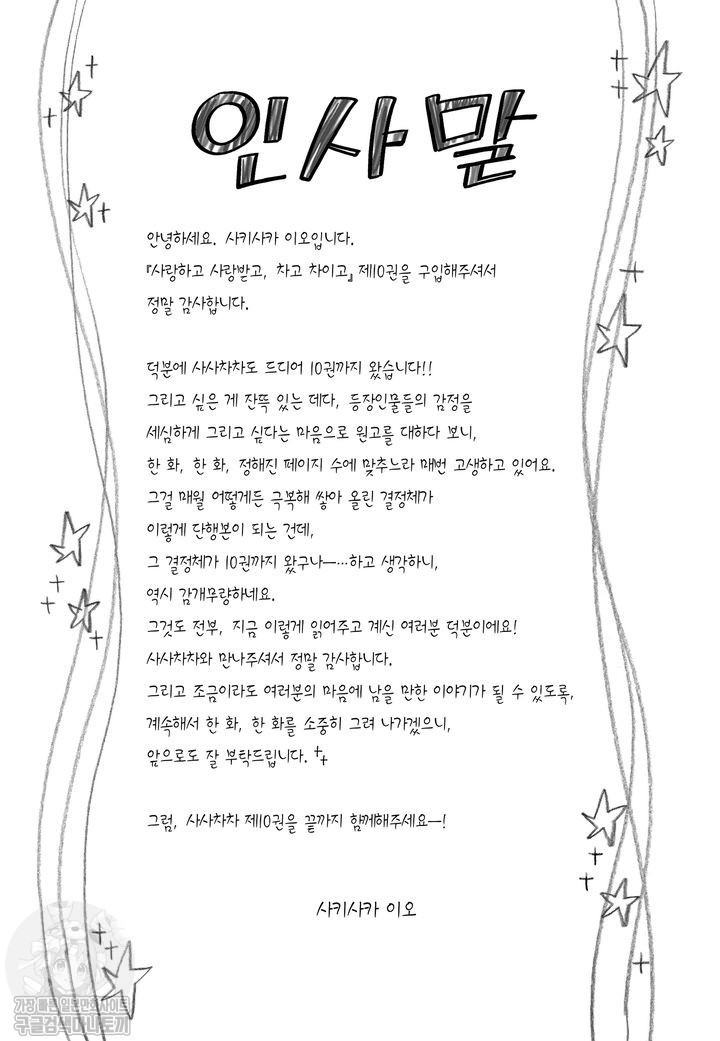 인사말
안녕하세요. 사키사카 이오입니다.
『사랑하고 사랑받고, 차고 차이고』 제10권을 구입해주셔서
정말 감사합니다.
덕분에 사사차차도 드디어 10권까지 왔습니다!!
그리고 싶은 게 잔뜩 있는 데다, 등장인물들의 감정을
세심하게 그리고 싶다는 마음으로 원고를 대하다 보니,
한 화, 한 화, 정해진 페이지 수에 맞추느라 매번 고생하고 있어요.
그걸 매월 어떻게든 극복해 쌓아 올린 결정체가
이렇게 단행본이 되는 건데,
그 결정체가 10권까지 왔구나―…하고 생각하니,
역시 감개무량하네요.
그것도 전부, 지금 이렇게 읽어주고 계신 여러분 덕분이에요!
사사차차와 만나주셔서 정말 감사합니다.
그리고 조금이라도 여러분의 마음에 남을 만한 이야기가 될 수 있도록,
계속해서 한 화, 한 화를 소중히 그려 나가겠으니,
앞으로도 잘 부탁드립니다.
그럼, 사사차차 제10권을 끝까지 함께해주세요―!
사키사카 이오
가장 빠른 일본만화사이트
구글검색마나토끼